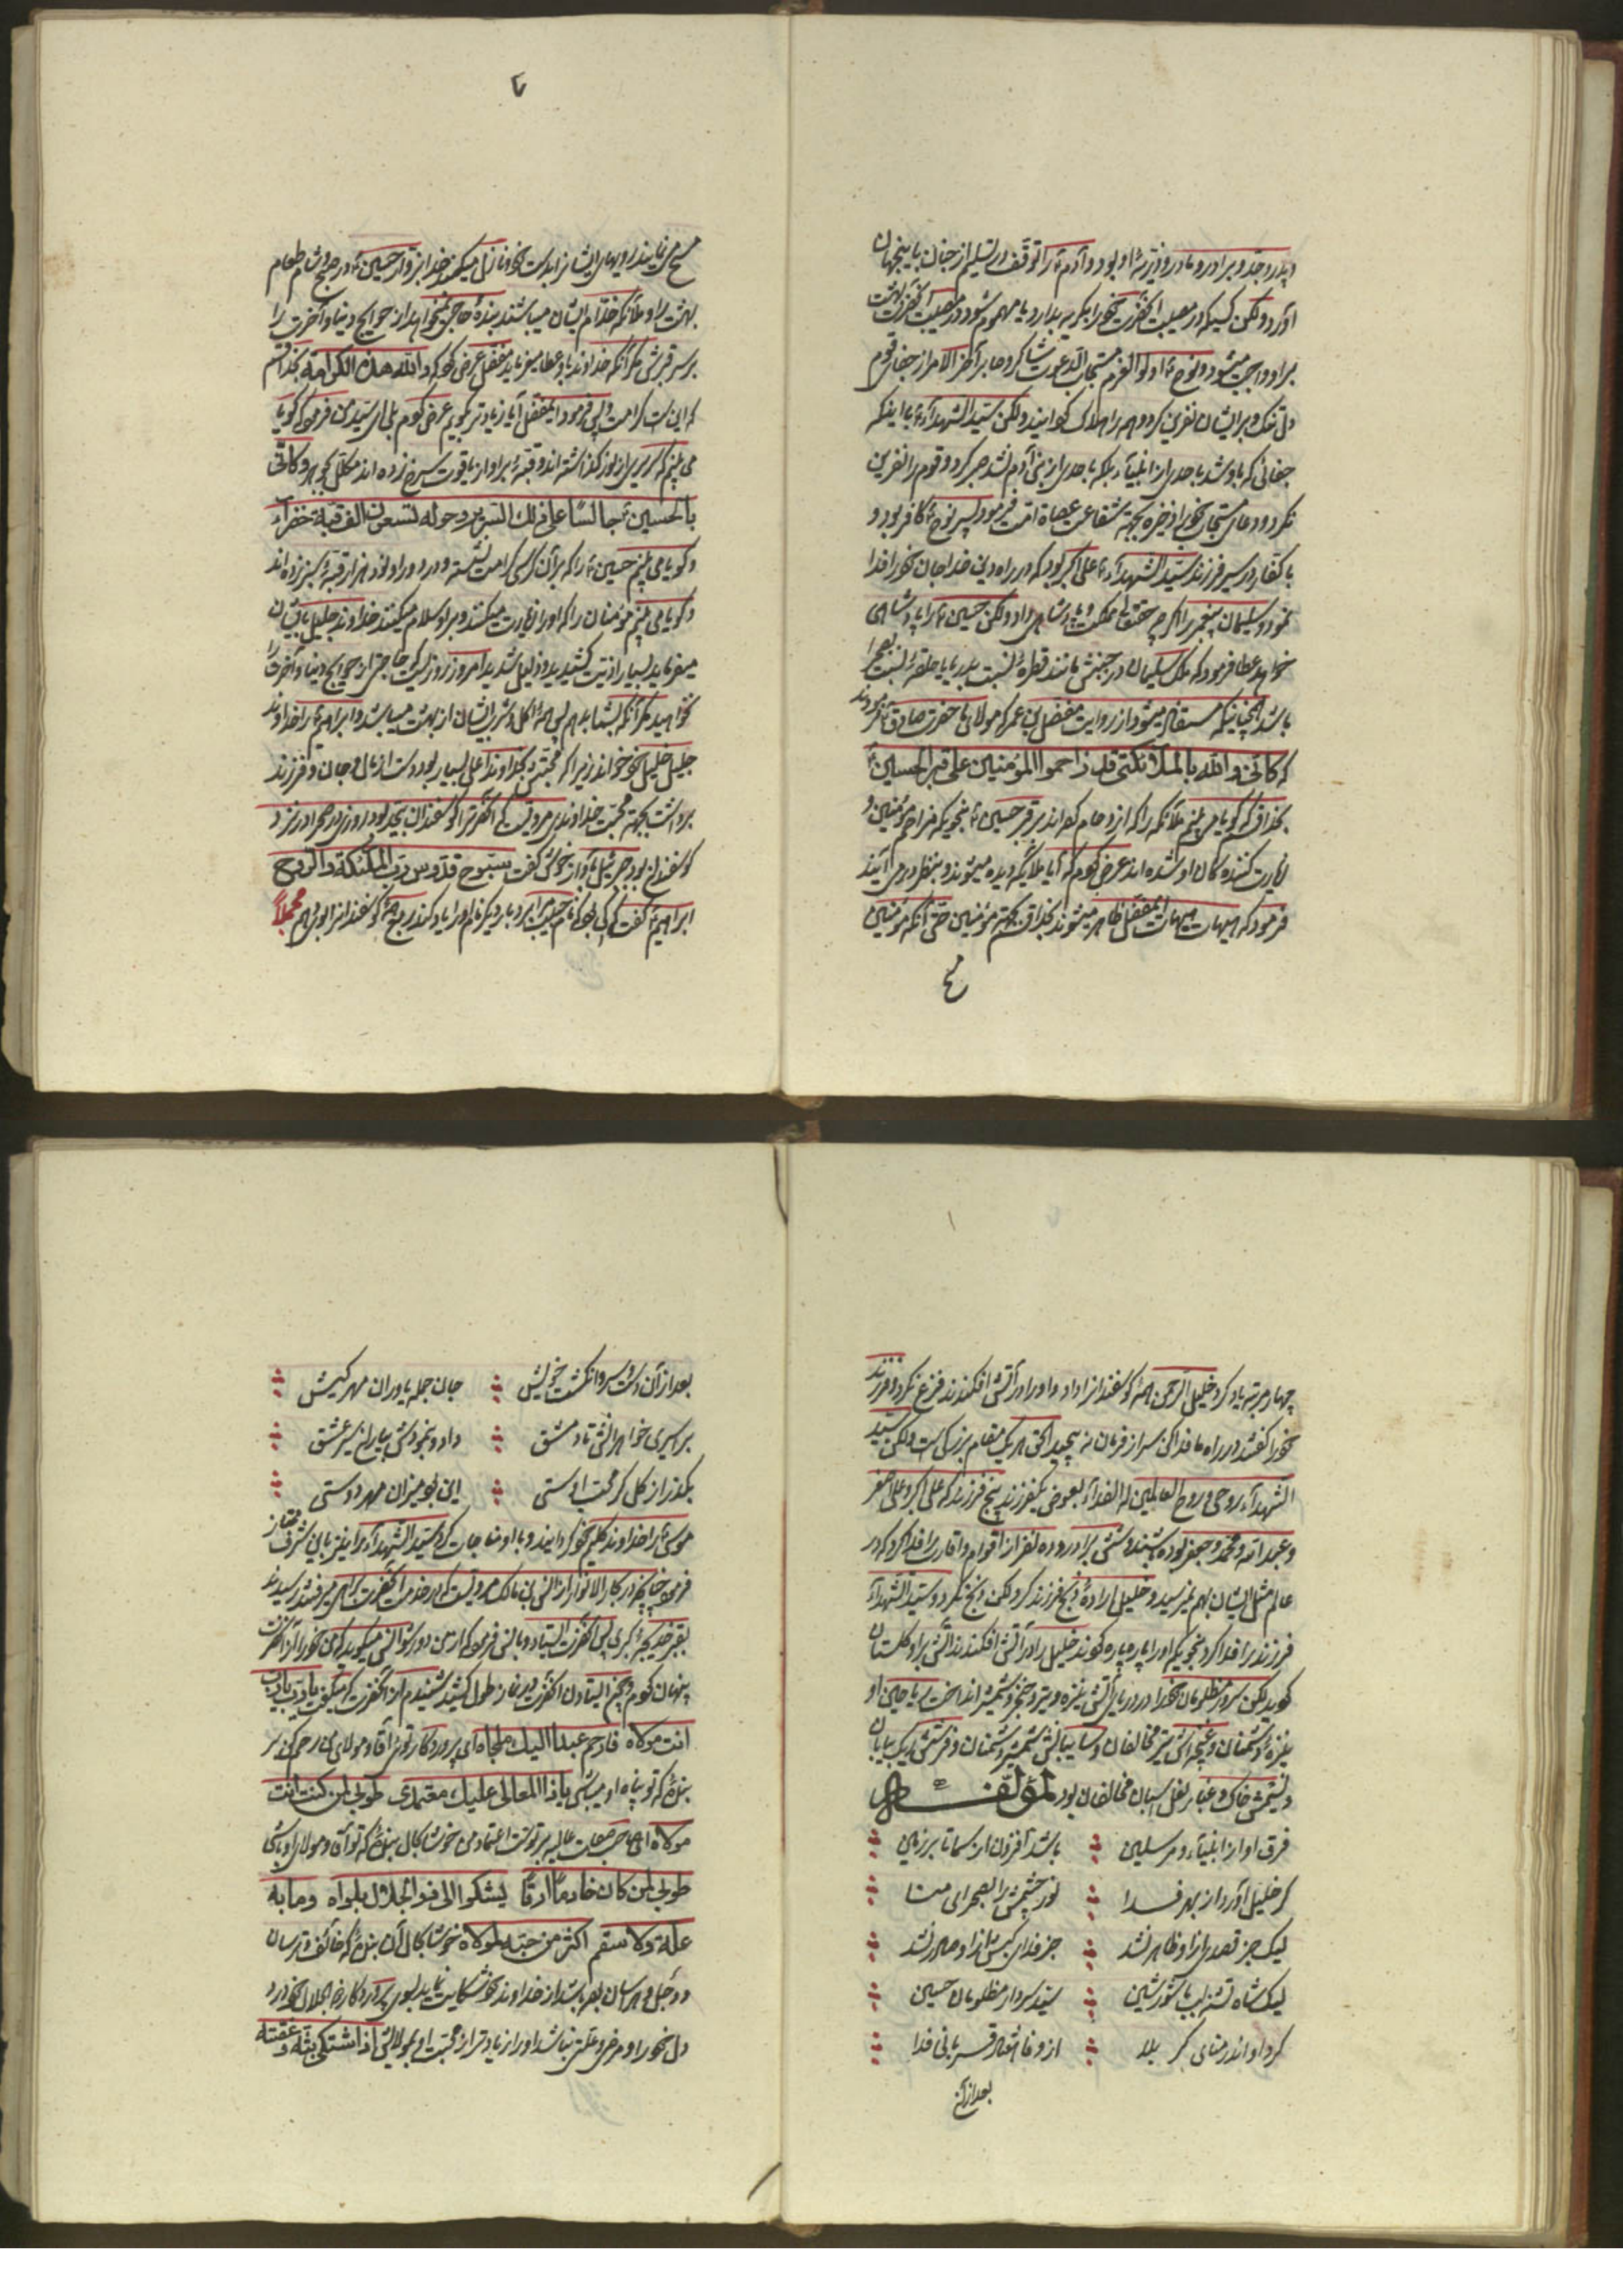 و پدر و جد و برادر و مادر و ذریهٔ او بود و آدم ع را توقف در تسلیم از جنان باینجهان
آورد ولکن کسیکه در مصیبت آنحضرت خود را بگریه بدارد یا مهموم شود در مصیبت آنحضرت بهشت
بر او واجب میشود و نوح ع اولوالعزم مستجاب الدعوت شاکر و صابر آخر الامر از جفای قوم
دلتنک و بر ایشان نفرین کرد و همه را هلاک کردانید ولکن سید الشهدآء ع با اینکه
جفائی که باو شد باحدی از انبیآء بلکه باحدی از بنی آدم نشد صبر کرد و قوم را نفرین
نکرد و دعای مستجاب خود را ذخیره بجهة شفاعت عصاة امت فرمود پسر نوح ع کافر بود و
با کفار در سیر فرزند سید الشهدآء ع علی اکبر بود که در راه دین خدا جان خود را فدا
نمود و سلیمان پیغمبر را اکرچه حقتعالی مملکت و پادشاهی داد ولکن حسین ع را پادشاهی
خواهد عطا فرمود که ملک سلیمان در جنبش مانند قطرهٔ نسبت بدریا یا حلقهٔ نسبت بصحرا
باشد چنانچه مستفاد میشود از روایت مفضل بن عمر که مولای ما حضرت صادق ع فرمودند
که کانی والله بالملآئکتی قد زاحموا المؤمنین علی قبر الحسین ع
بخدا قسم کویا می بینم ملآئکه را که ازدحام کرده اند بر قبر حسین ع بنحویکه مزاحم مؤمنین و
زیارت کننده کان او شده اند عرض کردم که آیا ملائکه دیده میشوند و بنظر در می آیند
فرمود که هیهات هیهات ایمفضل ظاهر میشوند بخدا قسم بجهة مؤمنین حتی آنکه مؤمنین
مسح
۷
مسح می نمایند رویهای ایشانرا بدست خود و نازل میکند خدا بزوار حسین ع در صبح و شام طعام
بهشت را و ملآئکه خدّام ایشان میباشند بندهٔ حاجتی نخواهد از حوایج دنیا و آخرت را
بر سر قبرش مکر آنکه خداوند باو عطا میفرماید مفضل عرض کرد که والله هذه الکرامة بخدا قسم
که این است کرامت پس فرمود ایمفضل آیا زیادتر بکویم عرض کردم بلی ای سید من فرمود که کویا
می بینم که سریری از نور کذاشته اند و قبهٔ بر او از یاقوت سرخ زده اند مکلل بجواهر و کانّی
بالحسین ع جالسًا علی ذلک السریر و حوله تسعون الف قبة خضرآء
و کویا می بینم حسین ع را که بر آن کرسی کرامت نشسته و در دور او نود هزار قبهٔ سبز زده اند
و کویا می بینم مؤمنان را که او را زیارت میکنند و بر او سلام میکنند خداوند جلیل بایشان
میفرماید بسیار اذیت کشیدید و ذلیل شدید امروز روزیست که حاجتی از حوایج دنیا و آخرت را
نخواهید مکر آنکه بشما بدهم پس همهٔ اکل و شرب ایشان از بهشت میباشد و ابراهیم ع را خداوند
جلیل خلیل خود خواند زیرا که محبتش بخداوند اعلی بسیار بود و دست از مال و جان و فرزند
برداشت بجهة محبت خداوندی مرویست که آنحضرت را کوسفندان بیحد بود روزی در صحرا در نزد
کوسفندان بود جبرئیل بآواز خوش کفت سبّوح قدّوس ربّ الملئکة والرّوح
ابراهیم ع کفت ای که نام حبیب مرا بردی بار دیکر نام او را یاد کن در ربع همهٔ کوسفندانرا بتو میدهم مجملاً
چهار مرتبه یاد کرد خلیل الرحمن همهٔ کوسفندانرا داد و او را در آتش افکندند فزع نکرد و فرزند
خود را کفتند در راه ما فدا کن سر از فرمان نه پیچید الحق هر یک مقام بزرکی است ولکن سید
الشهدآء روحی و روح العالمین له الفدآء بعوض یکفرزند پنج فرزند که علی اکبر و علی اصغر
و عبدالله و محمد و جعفر بوده باشند و شش برادر و ده نفر از اقوام و اقارب را فدا کرد که در
عالم مثل ایشان بهم نمیرسید و خلیل ارادهٔ ذبح فرزند کرد لکن ذبح نکرد و سید الشهدآء
فرزند را فدا کرد بنحویکه او را پاره پاره کردند خلیل را در آتش افکندند آتش بر او کلستان
کردید لکن سرور مظلومان خود را در دریای آتش نیزه و تیر و خنجر و شمشیر انداخت ریاحین او
نیزهٔ دشمنان و غنچه اش تیر مخالفان و سایبانش شمشیر دشمنان و فرشش ریک بیابان
و نسیمش خاک و غبار نعل اسبان مخالفان بود لمؤلفه
فرق او از انبیآء و مرسلین باشد افزون از سما تا بر زمین
کر خلیل آورد از بهر فدا نور چشمش را بصحرای منا
لیک جز قصدی از او ظاهر نشد جز فدای کبش از او صادر نشد
لیک شاه تشنه لب با شور و شین سید و سردار مظلومان حسین
کرد او اندر منای کربلا از وفا هفتاد قربانی فدا
بعد از آن
بعد از آن دست و سر و انکشت خویش جان جمله یاوران مهر کیش
بر اسیری خواهرانش تا دمشق داد و بنمودش بیاران سر عشق
بکذر از کل کر محب اوستی این بود میزان مهر و دوستی
موسی ع را خداوند کلیم خود کردانید و با او مناجات کرد سید الشهدآء را نیز باین شرف ممتاز
فرمود چنانچه در بحار الانوار از انس بن مالک مرویست که در خدمت آنحضرت براهی میرفتند رسیدند
بقبر خدیجهٔ کبری پس آنحضرت ایستاد و بانس فرمود که از من دور شو انس میکوید که من خود را از آنحضرت
پنهان کردم و چون ایستادن آنحضرت در نماز طول کشید شنیدم از آنحضرت که میکفت یا ربّ یا ربّ
انت مولاه فارحم عبدا الیک ملجاه ای پروردکار توئی آقا و مولای من رحم کن بر
بندهٔ که تو پناه او میباشی یا ذا المعالی علیک معتمدی طوبی لمن کنت انت
مولاه ای صاحب صفات عالیه بر تو است اعتماد من خوشا بحال بندهٔ که تو آقا و مولای او باشی
طوبی لمن کان خادمًا ارقًا یشکوا الی ذو الجلال بلواه وما به
علة ولا سقم اکثر من حبّه لمولاه خوشا بحال آن بندهٔ که خائف و ترسان
و وجل و هراسان بوده باشد از خداوند خود شکایت نماید بسوی پروردکار ذو الجلال خود درد
دل خود را و مرض و علتی نباشد او را زیادتر از محبت او بمولایش اذا اشتکی بثّه و غصّته